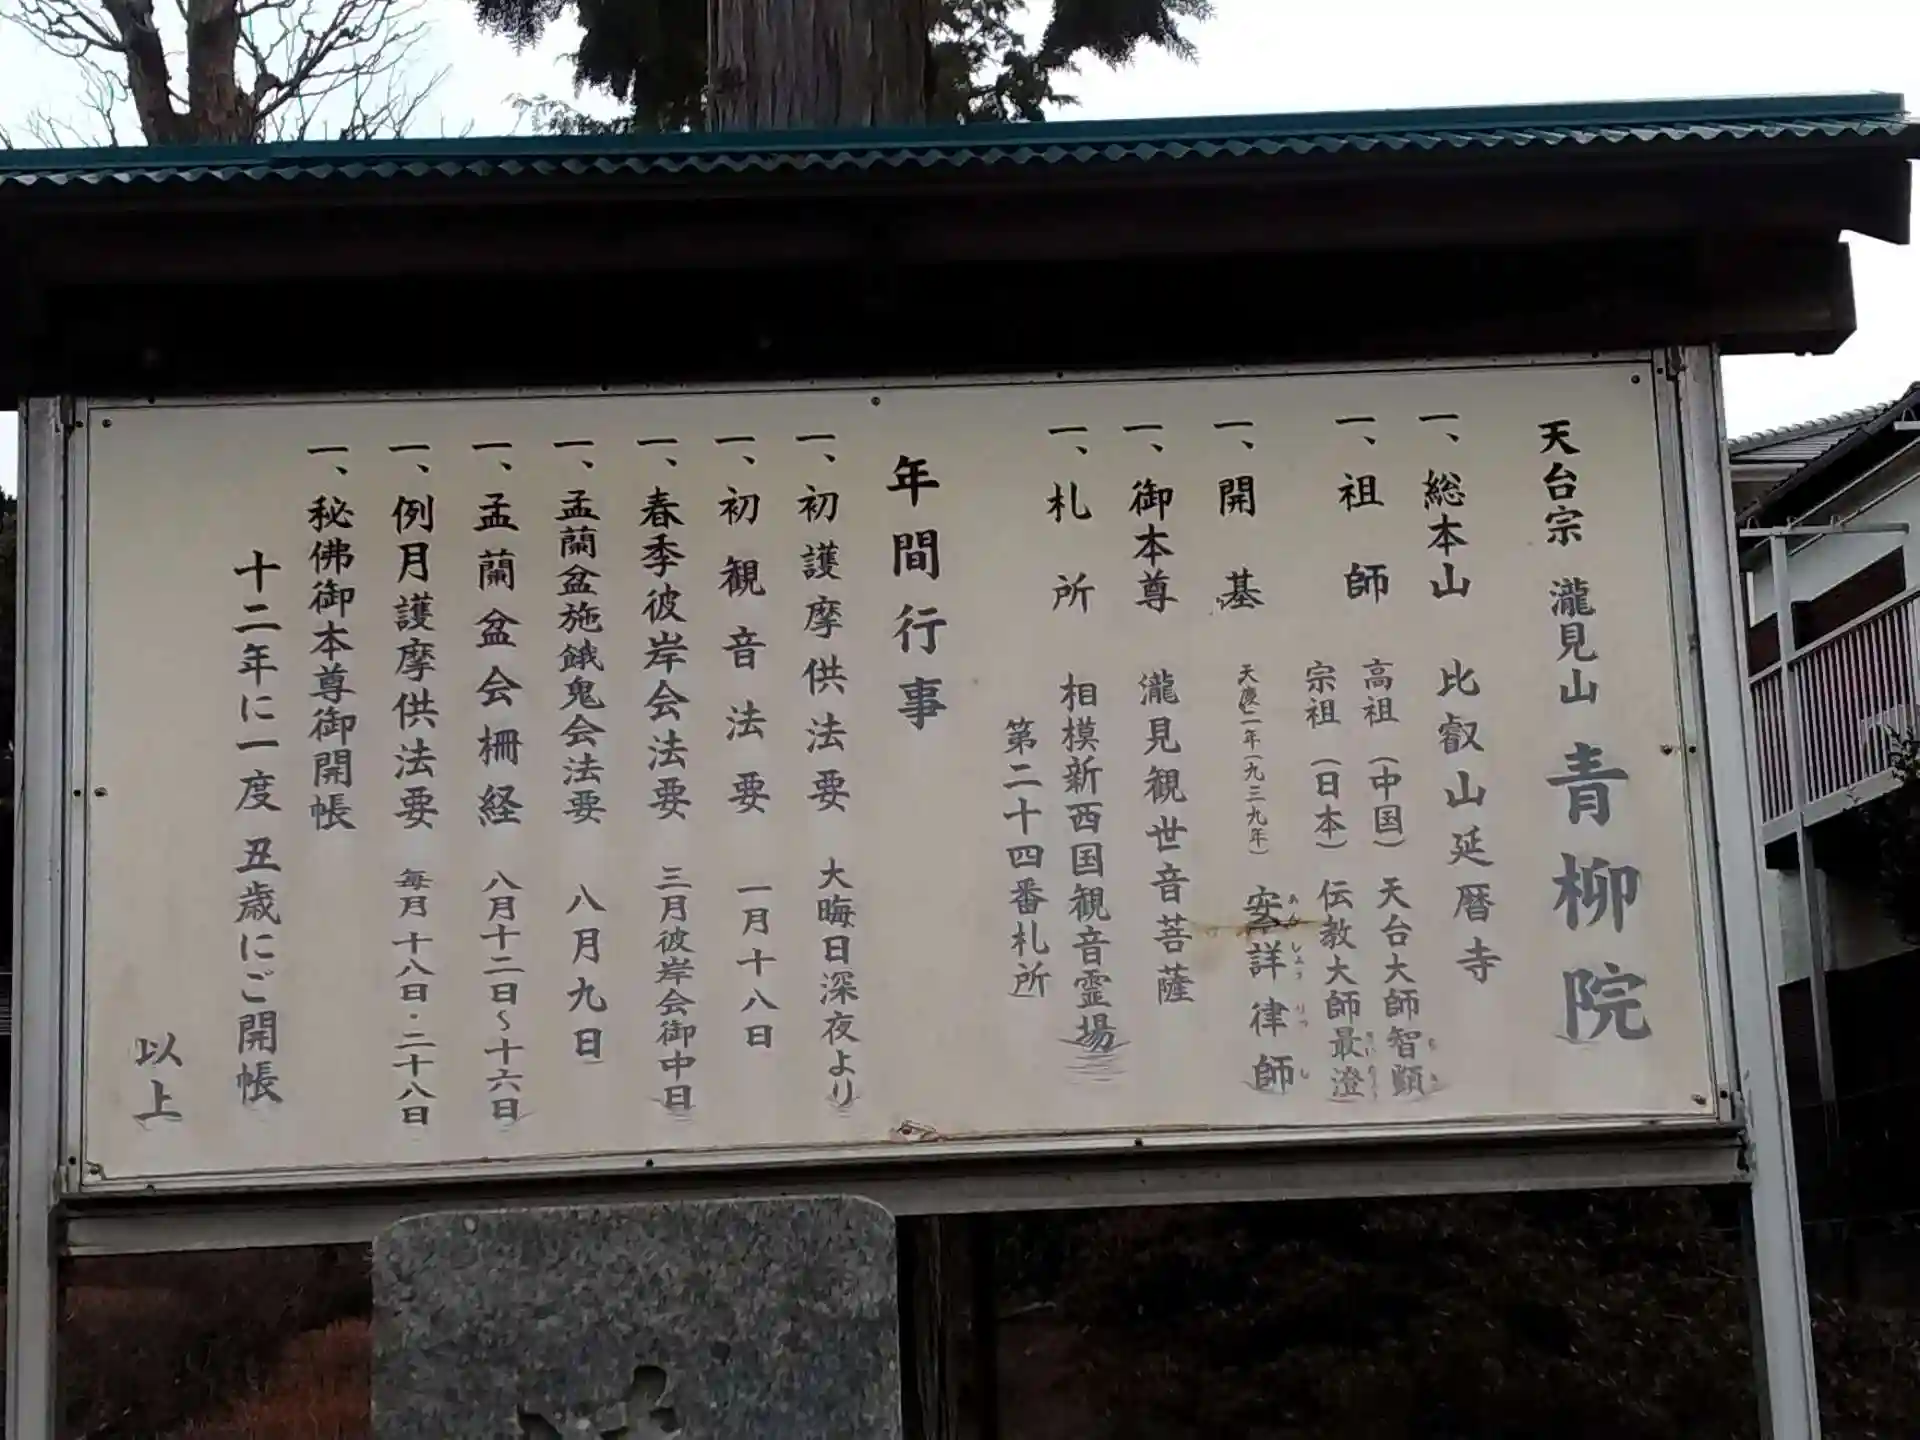 天台宗 瀧見山 青柳院
一、総本山 比叡山延暦寺
一、祖師 高祖(中国)天台大師智顗
宗祖(日本)伝教大師最澄
一、開基 天慶二年(九三九年)安詳律師
あんしょうりっし
一、御本尊 瀧見観世音菩薩
一、札所 相模新西国観音霊場
第二十四番札所
年間行事
一、初護摩供法要 大晦日深夜より
一、初観音法要 一月十八日
一、春季彼岸会法要 三月彼岸会御中日
一、孟蘭盆施餓鬼会法要 八月九日
一、孟蘭盆会棚経 八月十二日〜十六日
一、例月護摩供法要 毎月十八日・二十八日
一、秘佛御本尊御開帳
十二年に一度 丑歳にご開帳
以上